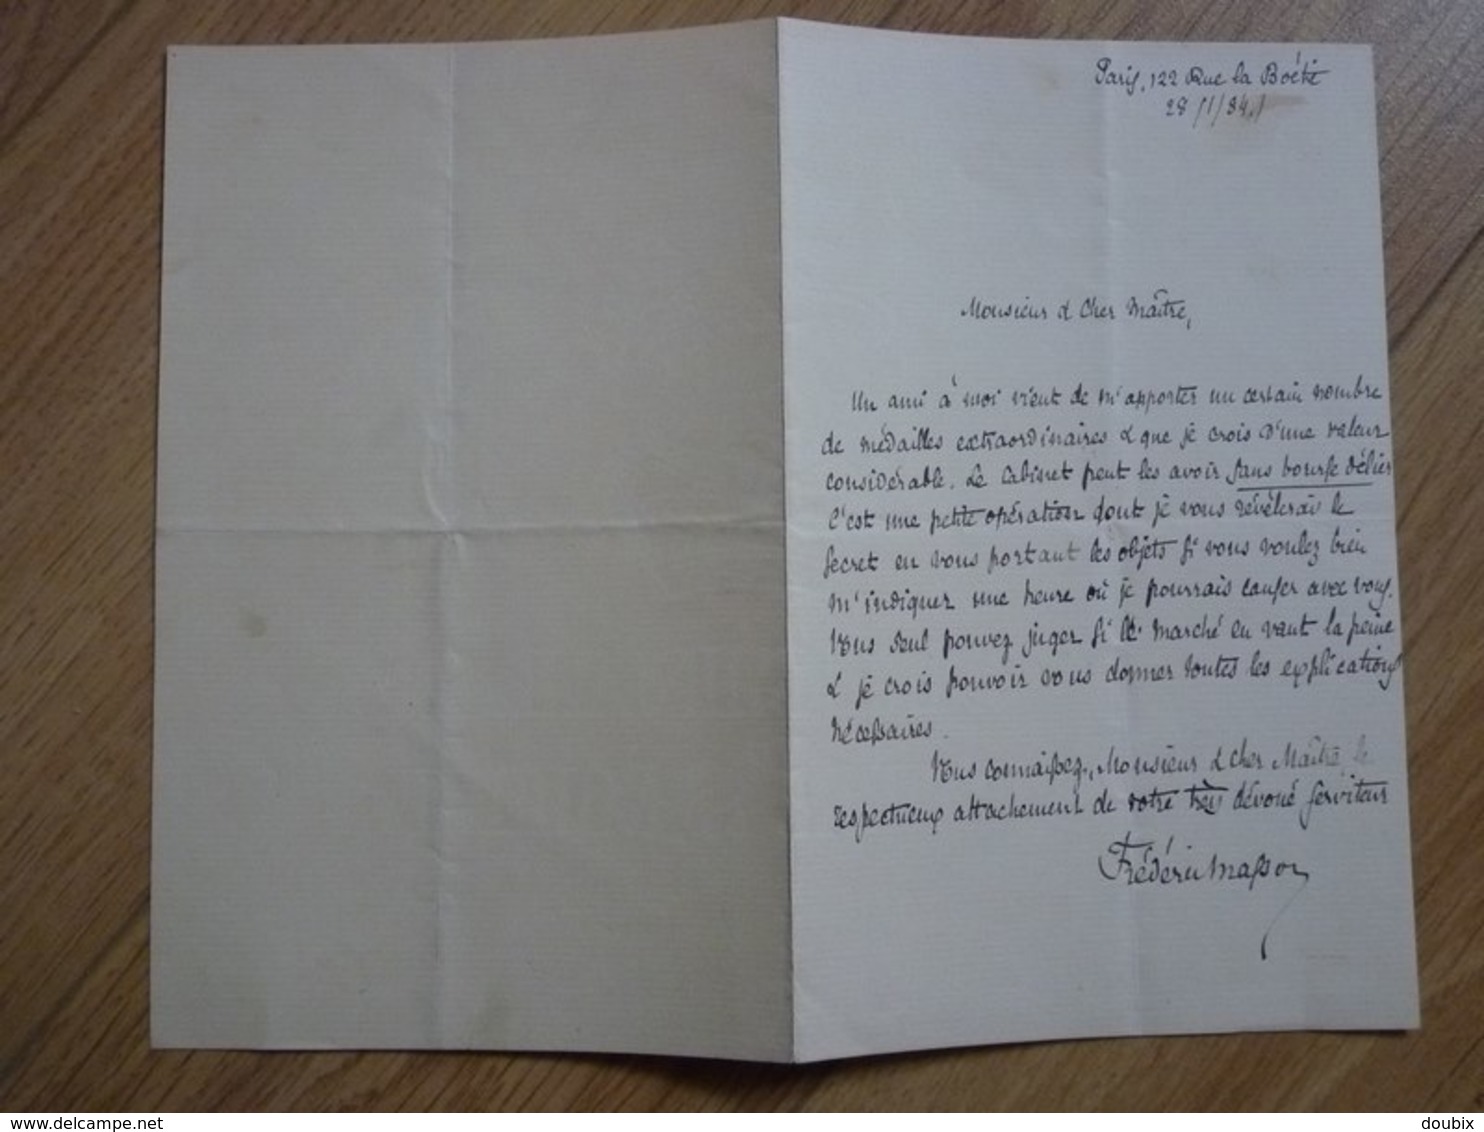 Paris, 122 Rue la Boétie
28/1/84
Monsieur & Cher Maître,
Un ami à moi vient de m'apporter un certain nombre
de médailles extraordinaires & que je crois d'une valeur
considérable. Le Cabinet peut les avoir sans bourse délier
C'est une petite opération dont je vous révèlerais le
secret en vous portant les objets si vous voulez bien
m'indiquer une heure où je pourrais causer avec vous.
Vous seul pouvez juger si le marché en vaut la peine
& je crois pouvoir vous donner toutes les explications
nécessaires.
Vous connaissez, Monsieur & cher Maître, le
respectueux attachement de votre très dévoué serviteur
Frédéric Masson
delcampe.net
doubix